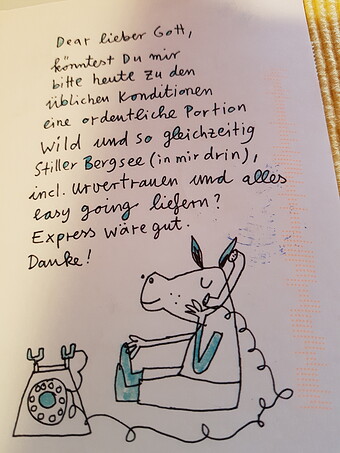 Dear lieber Gott,
könntest Du mir
bitte heute zu den
üblichen Konditionen
eine ordentliche Portion
Wild und so gleichzeitig
Stiller Bergsee (in mir drin),
incl. Urvertrauen und alles
easy going liefern?
Express wäre gut.
Danke!